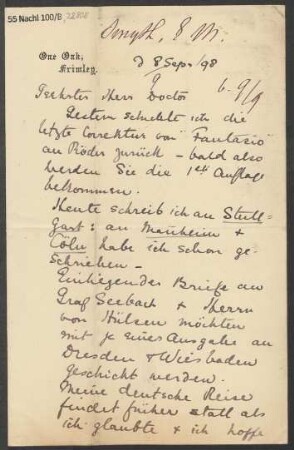 55 Nachl 100/B
Smyth, E M.
One Oak,
Frimley.
d 8 Sept 98
b. 9/9
Teehrster Herr Doctor
Gestern schickte ich die
letzte Correktur von "Fantasio"
an Röder zurück – bald also
werden Sie die 1te Auflage
bekommen.
Heute schreib ich an Stutt-
gart: an Manheim &
Cöln habe ich schon ge-
schrieben –
Einliegender Briefe an
Graf Seebach & Herrn
von Hülsen möchten
mit je einer Ausgabe an
Dresden & Wiesbaden
geschickt werden.
Meine deutsche Reise
findet früher statt als
ich glaubte & ich hoffe